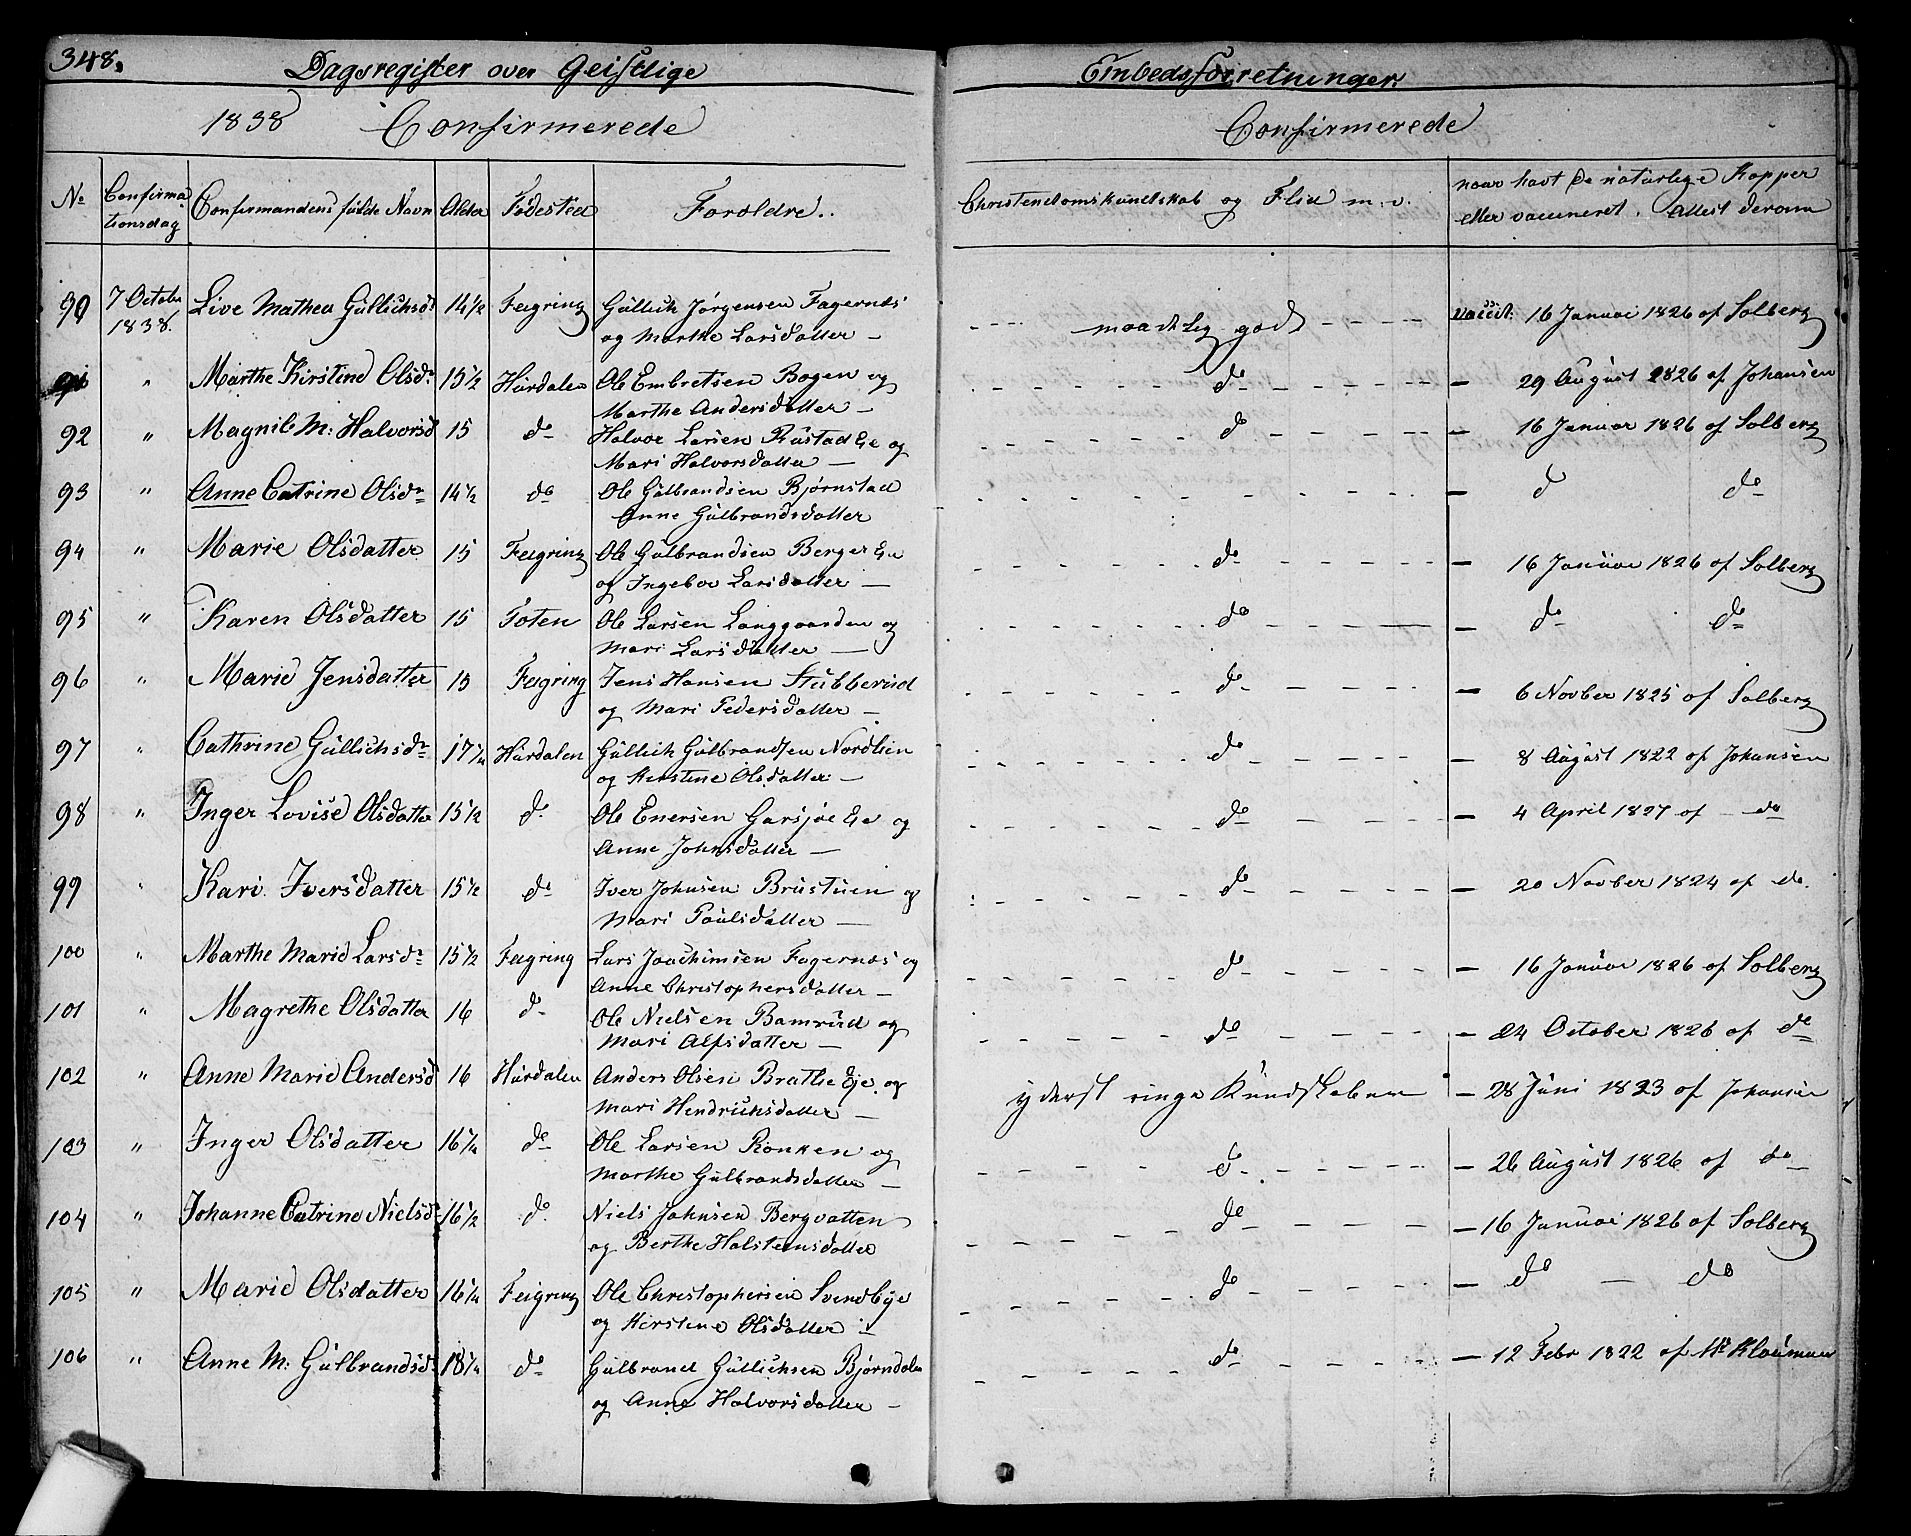 348.
Dagsregister over Geistlige Embedsforretninger.
1838 Confirmerede
Confirmerede
No Confirma Confirmandens fulde Navn Alder Fødested Forældre. Christendomskundskab og Flid m. v. naar havt de naturlige Kopper
tionsdag eller vaccineret. Attest derom
90 7 October Live Mathea Gullichsdr 14½ Feigring Gullich Jørgensen Fagernæs maadelig godt vaccit. 16 Januar 1826 af Solberg
1838. og Marthe Larsdatter —
91 " Marthe Kirstine Olsdr. 15½ Hurdalen Ole Embretsen Bogen og do — 29 August 1826 af Johansen
Marthe Andersdatter —
92 " Magnil M: Halvorsd 15 do Halvor Larsen Rustad Eie og do — 16 Januar 1826 af Solberg
Mari Halvorsdatter —
93 " Anne Catrine Olsdr 14½ do Ole Gulbrandsen Bjørnstad — d do
Anne Gulbrandsdatter
94 " Marie Olsdatter 15 Feigring Ole Gulbrandsen Berger Eie do — 16 Januar 1826 af Solberg
og Ingebor Larsdatter —
95 " Karen Olsdatter 15 Toten Ole Larsen Langgaarden og do — do do
Mari Larsdatter —
96 " Marie Jensdatter 15 Feigring Jens Hansen Stubberud do — 6 Novber 1825 af Solberg
og Mari Pedersdatter —
97 " Cathrine Gullichsdr 17¼ Hurdalen Gullich Gulbrandsen Nordlien do — 8 August 1822 af Johansen
og Kirstine Olsdatter —
98 " Inger Lovise Olsdatter 15½ do Ole Enersen Garsjøe Eie og do — 4 April 1827 af — do
Anne Johnsdatter —
99 " Kari Iversdatter 15½ do Iver Johnsen Brustuen og do — 20 Novber 1824 af do.
Mari Paulsdatter —
100 " Marthe Marie Larsdr 15½ Feigring Lars Joachimsen Fagernæs og do — 16 Januar 1826 af Solberg
Anne Christophersdatter —
101 " Magrethe Olsdatter 16 do Ole Nielsen Bamrud og do — 24 October 1826 af do
Mari Alfsdatter —
102 " Anne Marie Andersd 16 Hurdalen Anders Olsen Brathe Eje og yderst ringe Kundskaber — 28 Juni 1823 af Johansen
Mari Hendrichsdatter —
103 " Inger Olsdatter 16¼ do Ole Larsen Ronken og do — 26 August 1826 af do
Marthe Gulbrandsdatter —
104 " Johanne Catrine Nielsd 16½ do Niels Johnsen Bergvatten do — 16 Januar 1826 af Solberg
og Berthe Halsteensdatter
105 " Marie Olsdatter 16¼ Feigring Ole Christophersen Svendbye do — do — do
og Kirstine Olsdatter —
106 " Anne M: Gulbrandsd 18¼ do Gulbrand Gullichsen Bjørndalen do — 12 Febr 1822 af Mr Kloumann
og Anne Halvorsdatter —